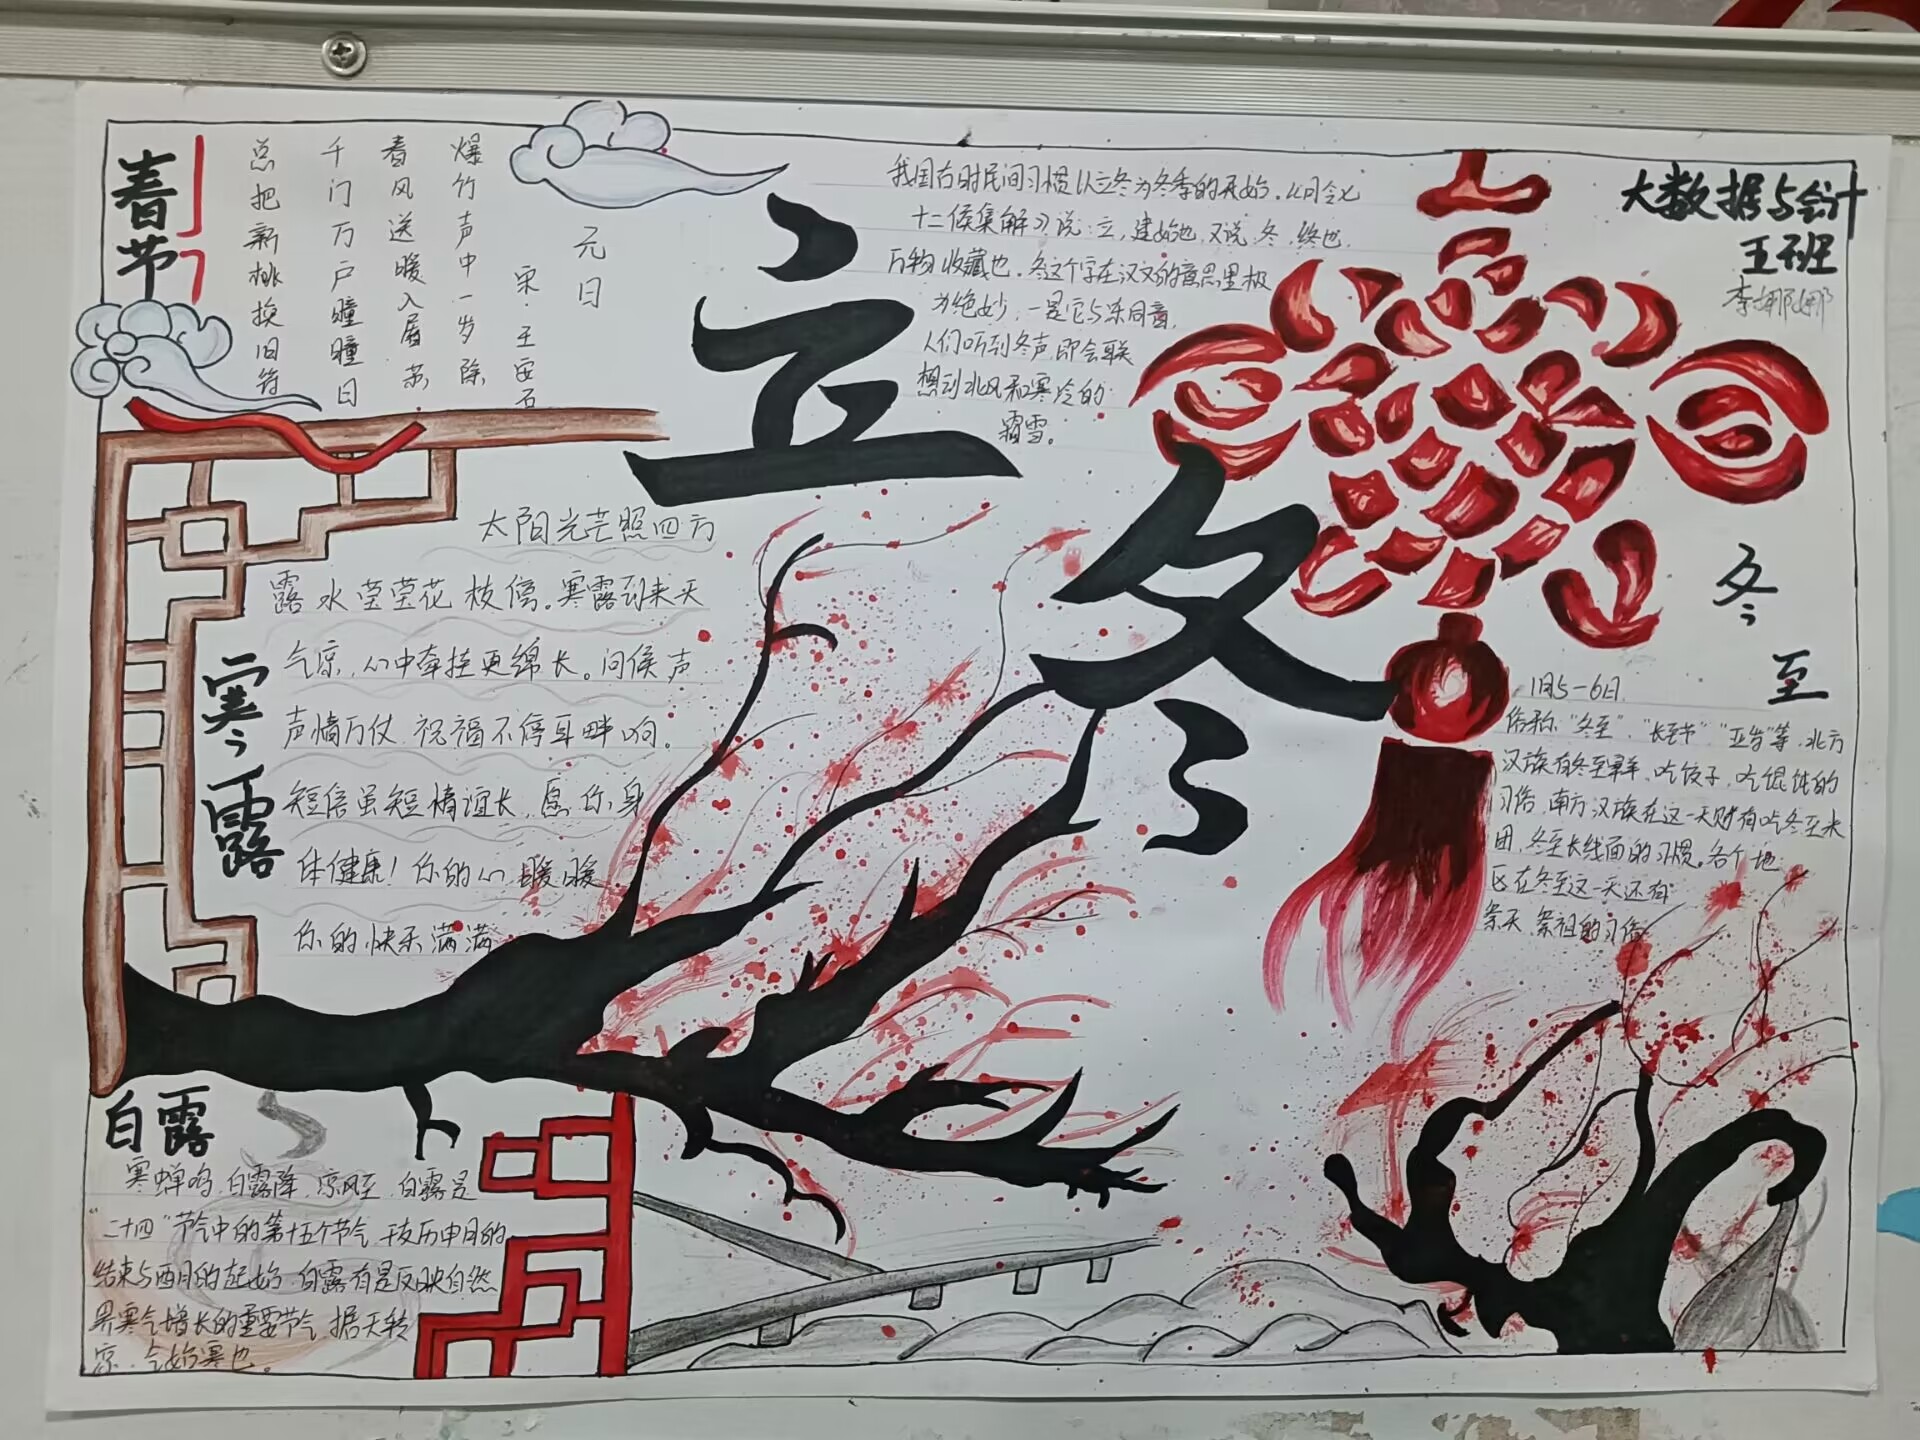 春节
元日
宋·王安石
爆竹声中一岁除
春风送暖入屠苏
千门万户曈曈日
总把新桃换旧符
立冬
我国古时民间习惯以立冬为冬季的开始。《月令七
十二候集解》说:立,建始也,又说:冬,终也,
万物收藏也。冬这个字在汉文的意思里极
为绝妙,一是它与冻同音,
人们听到冬声,即会联
想到北风和寒冷的
霜雪。
大数据与会计
五班
李娜娜
寒露
太阳光芒照四方
露水莹莹花枝俏。寒露到来天
气凉,心中牵挂更绵长。问候声
声情万仗,祝福不停耳畔响。
短信虽短情谊长,愿你身
体健康!你的心暖暖
你的快乐满满
冬至
1月5-6日
俗称"冬至"、"长至节"、"亚岁"等,北方
汉族有冬至宰羊,吃饺子,吃馄饨的
习俗,南方汉族在这一天则有吃冬至米
团,冬至长线面的习惯。各个地
区在冬至这一天还有
祭天,祭祖的习俗
白露
寒蝉鸣,白露降,凉风至,白露是
"二十四"节气中的第十五个节气,干支历申月的
结束与酉月的起始,白露有是反映自然
界寒气增长的重要节气,据天转
凉,气始寒也。